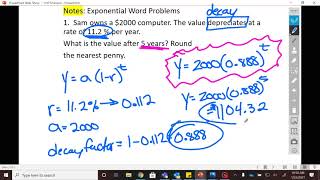 Notes: Exponential Word Problems
decay
1. Sam owns a $2000 computer. The value depreciates at a
rate of 11.2 % per year.
What is the value after 5 years? Round
the nearest penny.
y = 2000(0.888)^t
y = a(1-r)^t
y = 2000(0.888)^5
r = 11.2% → 0.112
= 1104.32
a = 2000
decay factor = 1 - 0.112
0.888